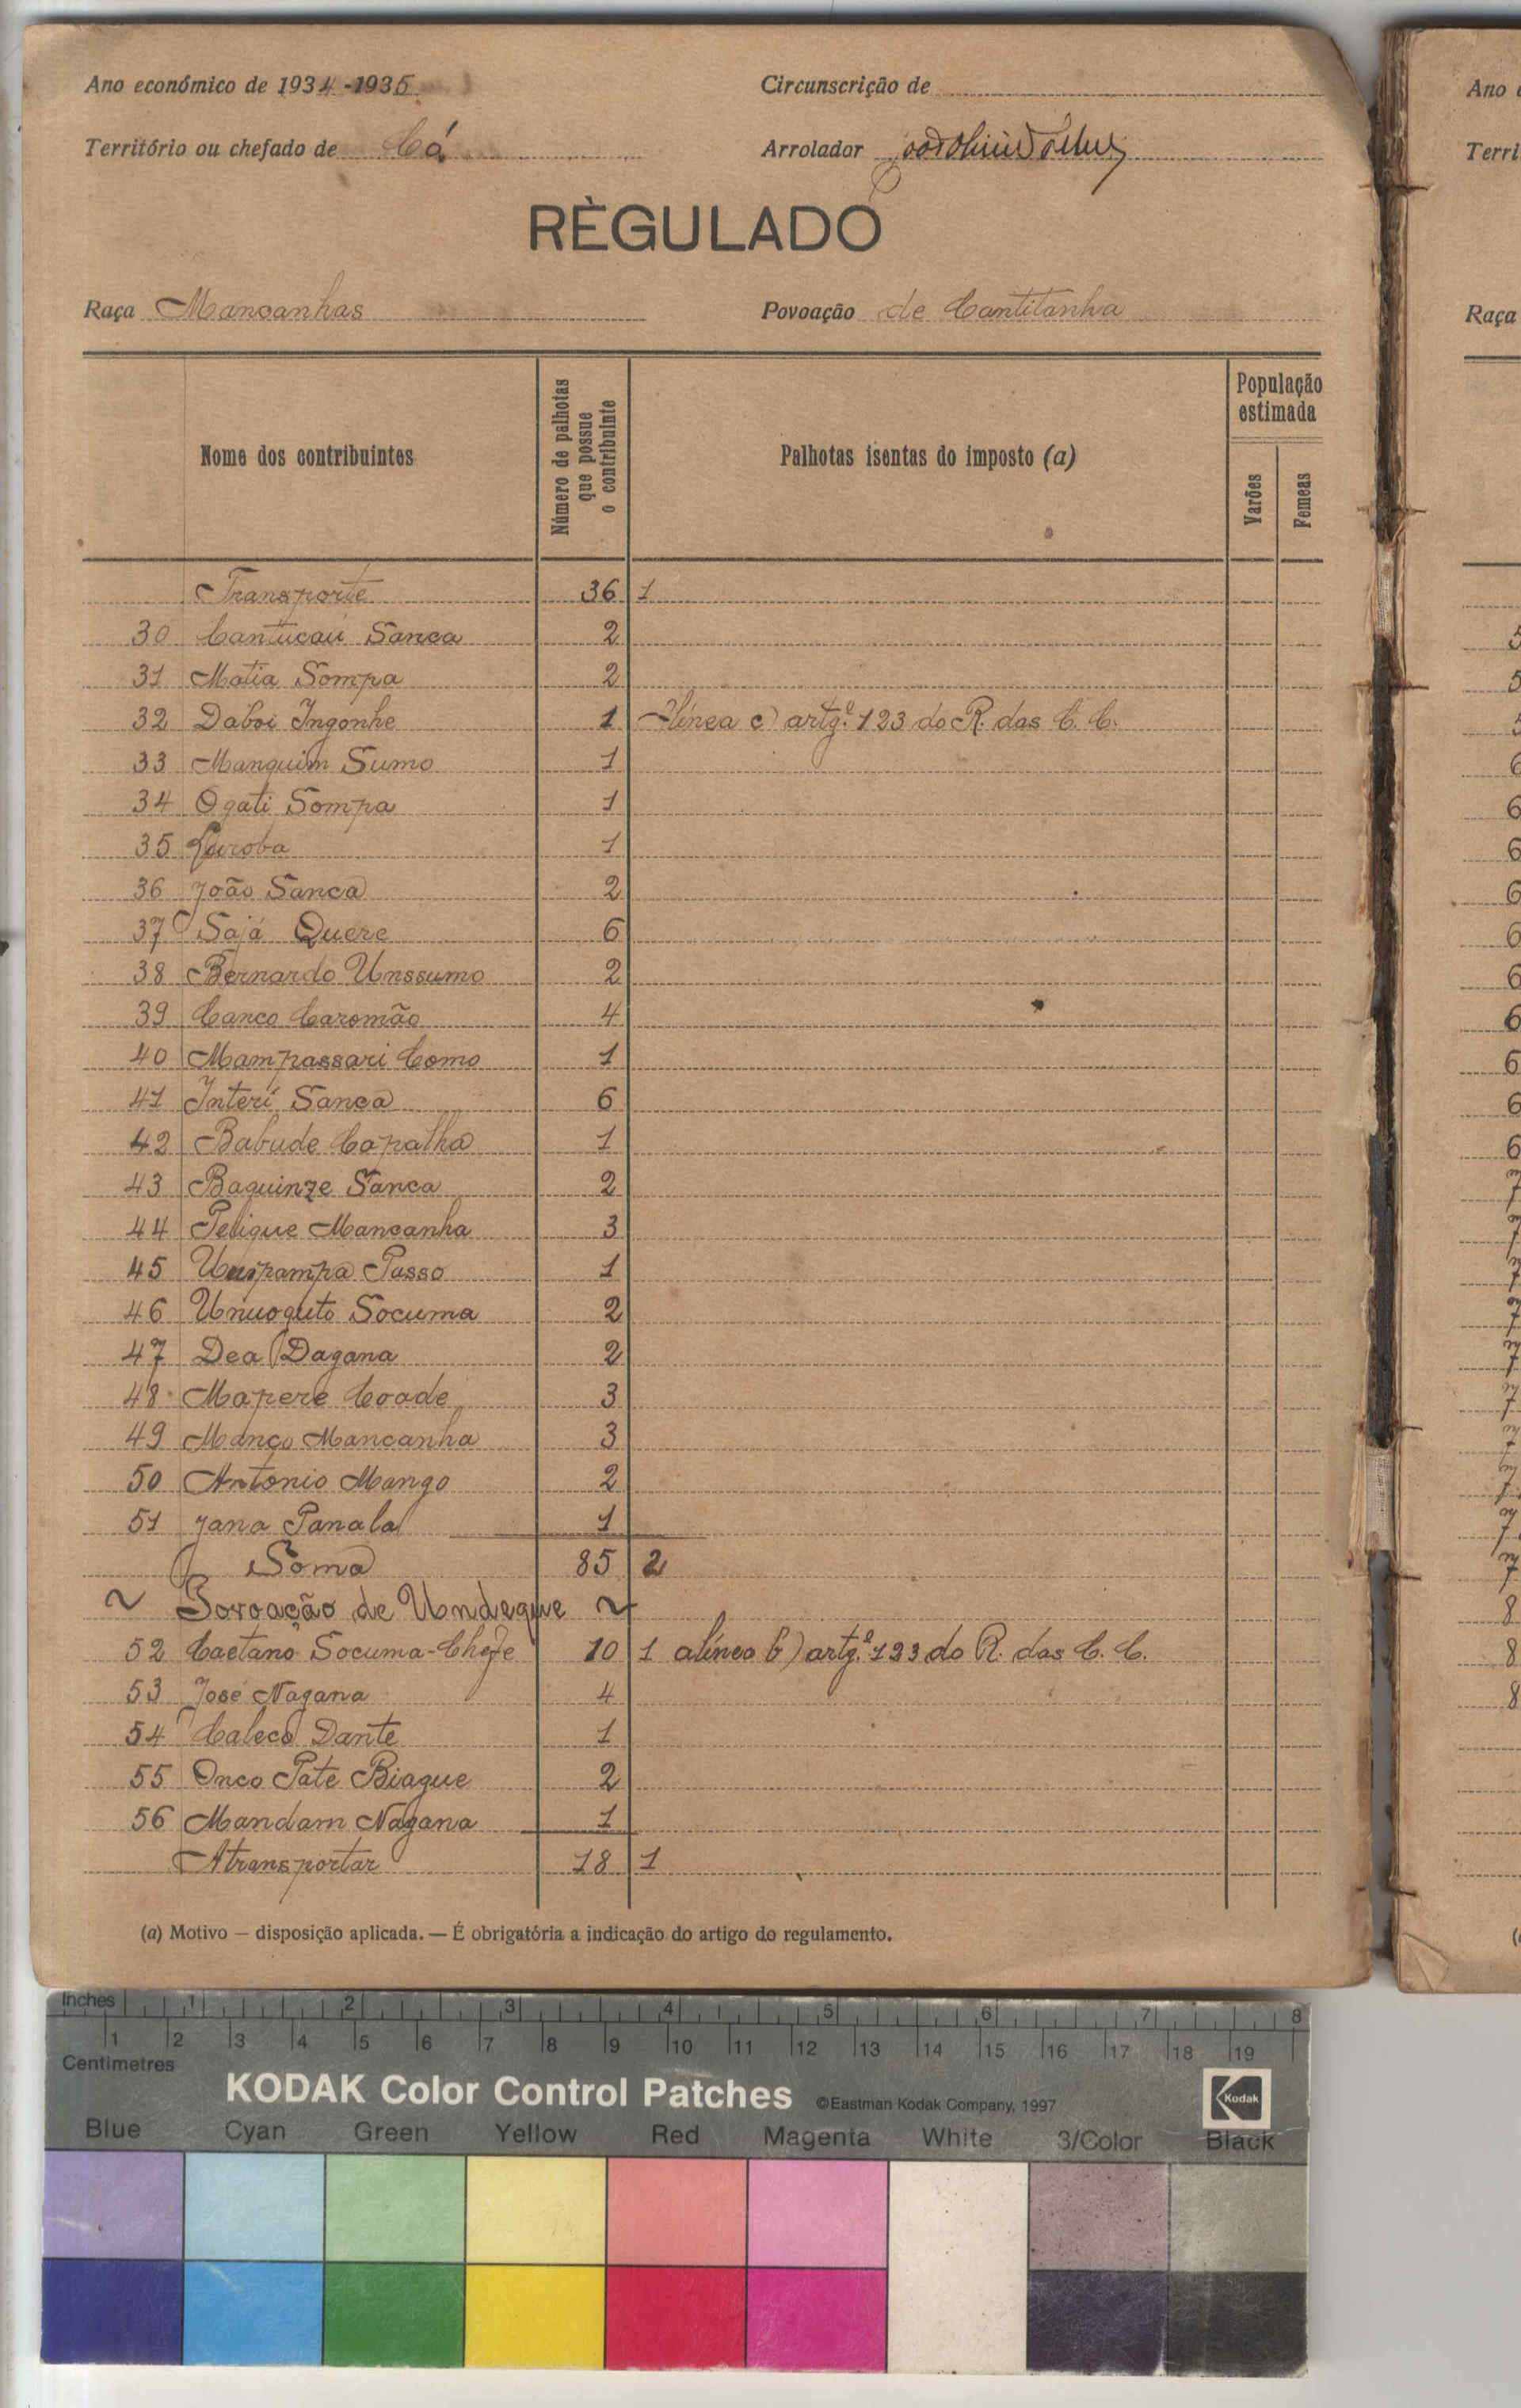 Ano económico de 1934-1935
Circunscrição de
Território ou chefado de Có
Arrolador
RÈGULADO
Raça Mancanhas
Povoação de Cantitanha
Nome dos contribuintes
Número de palhotas que possue o contribuinte
Palhotas isentas do imposto (a)
População estimada
Varões
Femeas
Transporte 36 1
30 Cantucaú Sanca 2
31 Matia Sompa 2
32 Daboi Ingonhe 1 línea c) artg.º 123 do R. das C. C.
33 Manquim Sumo 1
34 Ogati Sompa 1
35 1
36 João Sanca 2
37 Sajá Quere 6
38 Bernardo Unssumo 2
39 Canco Caromão 4
40 Mampassari Como 1
41 Interi Sanca 6
42 Babude Capalha 1
43 Baquinze Sanca 2
44 Pelique Mancanha 3
45 Passo 1
46 Unuoquto Socuma 2
47 Dea Dagana 2
48 Mapere Coade 3
49 Manço Mancanha 3
50 Antonio Mango 2
51 Jana Panala 1
Soma 85 2
~ Povoação de Undeque ~
52 Caetano Socuma-Chefe 10 1 alínea b) artg.º 123 do R. das C. C.
53 José Nagana 4
54 Caleco Dante 1
55 Onco Paté Biague 2
56 Mandam Nagana 1
A transportar 18 1
(a) Motivo — disposição aplicada. — É obrigatória a indicação do artigo do regulamento.
Ano
Terri
Raça
Inches 1 2 3 4 5 6 7 8
1 2 3 4 5 6 7 8 9 10 11 12 13 14 15 16 17 18 19
Centimetres
KODAK Color Control Patches ©Eastman Kodak Company, 1997 Kodak
Blue Cyan Green Yellow Red Magenta White 3/Color Black